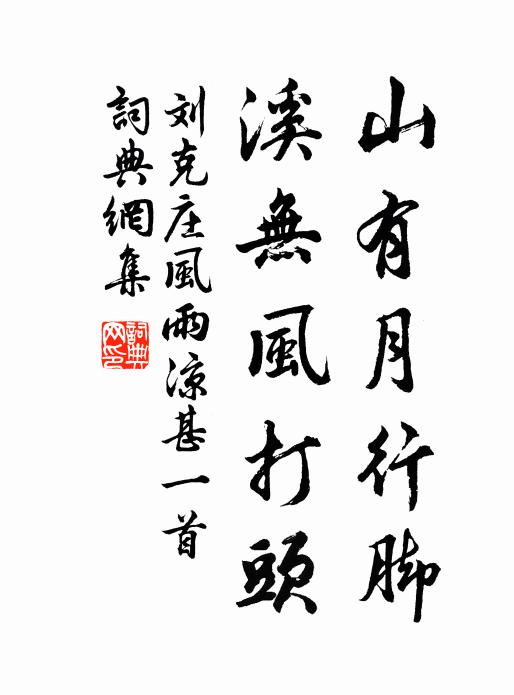 山有月行脚
溪無風打頭
刘克庄風雨凉甚一首
詞典網集
詞典网印